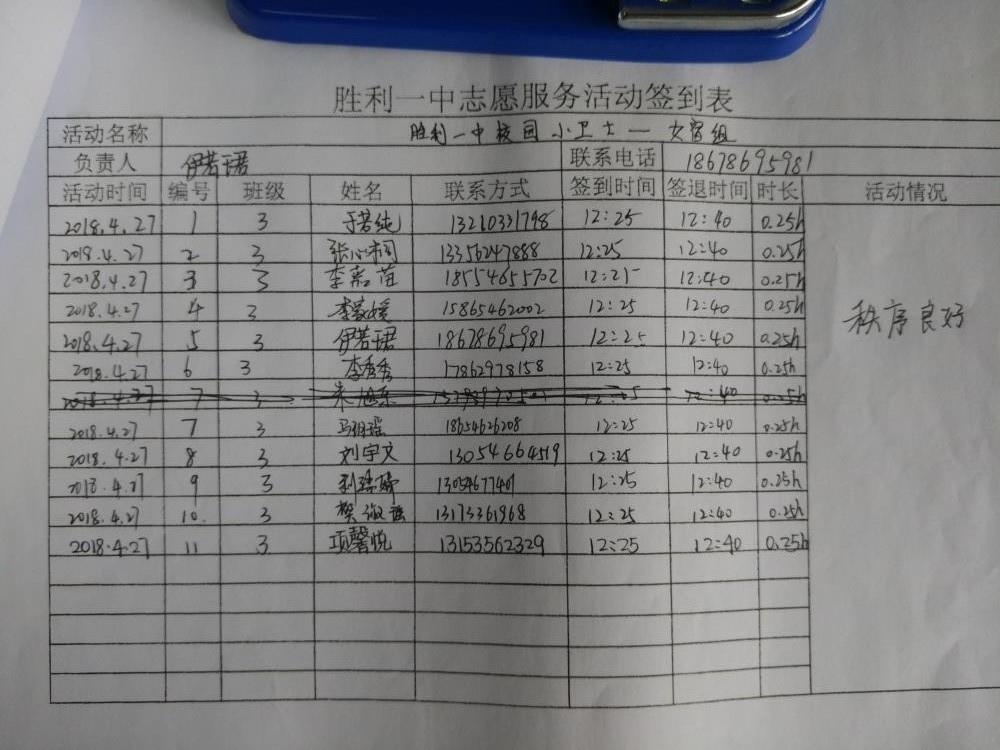 胜利一中志愿服务活动签到表
活动名称 胜利一中校园小卫士一女宿组
负责人 伊若珺 联系电话 18678695981
活动时间 编号 班级 姓名 联系方式 签到时间 签退时间 时长 活动情况
2018.4.27 1 3 于若纯 13210331798 12:25 12:40 0.25h
2018.4.27 2 3 13356247888 12:25 12:40 0.25h
2018.4.27 3 3 18554655702 12:25 12:40 0.25h
2018.4.27 4 3 15865462002 12:25 12:40 0.25h
秩序良好
2018.4.27 5 3 伊若珺 18678695981 12:25 12:40 0.25h
2018.4.27 6 3 李秀秀 17862978158 12:25 12:40 0.25h
2018.4.27 7 3 12:40 0.25h
2018.4.27 7 3 18654626208 12:25 12:40 0.25h
2018.4.27 8 3 刘宇文 13054664519 12:25 12:40 0.25h
2018.4.27 9 3 12:25 12:40 0.25h
2018.4.27 10. 3 13173361968 12:25 12:40 0.25h
2018.4.27 11 3 项馨悦 13153562329 12:25 12:40 0.25h